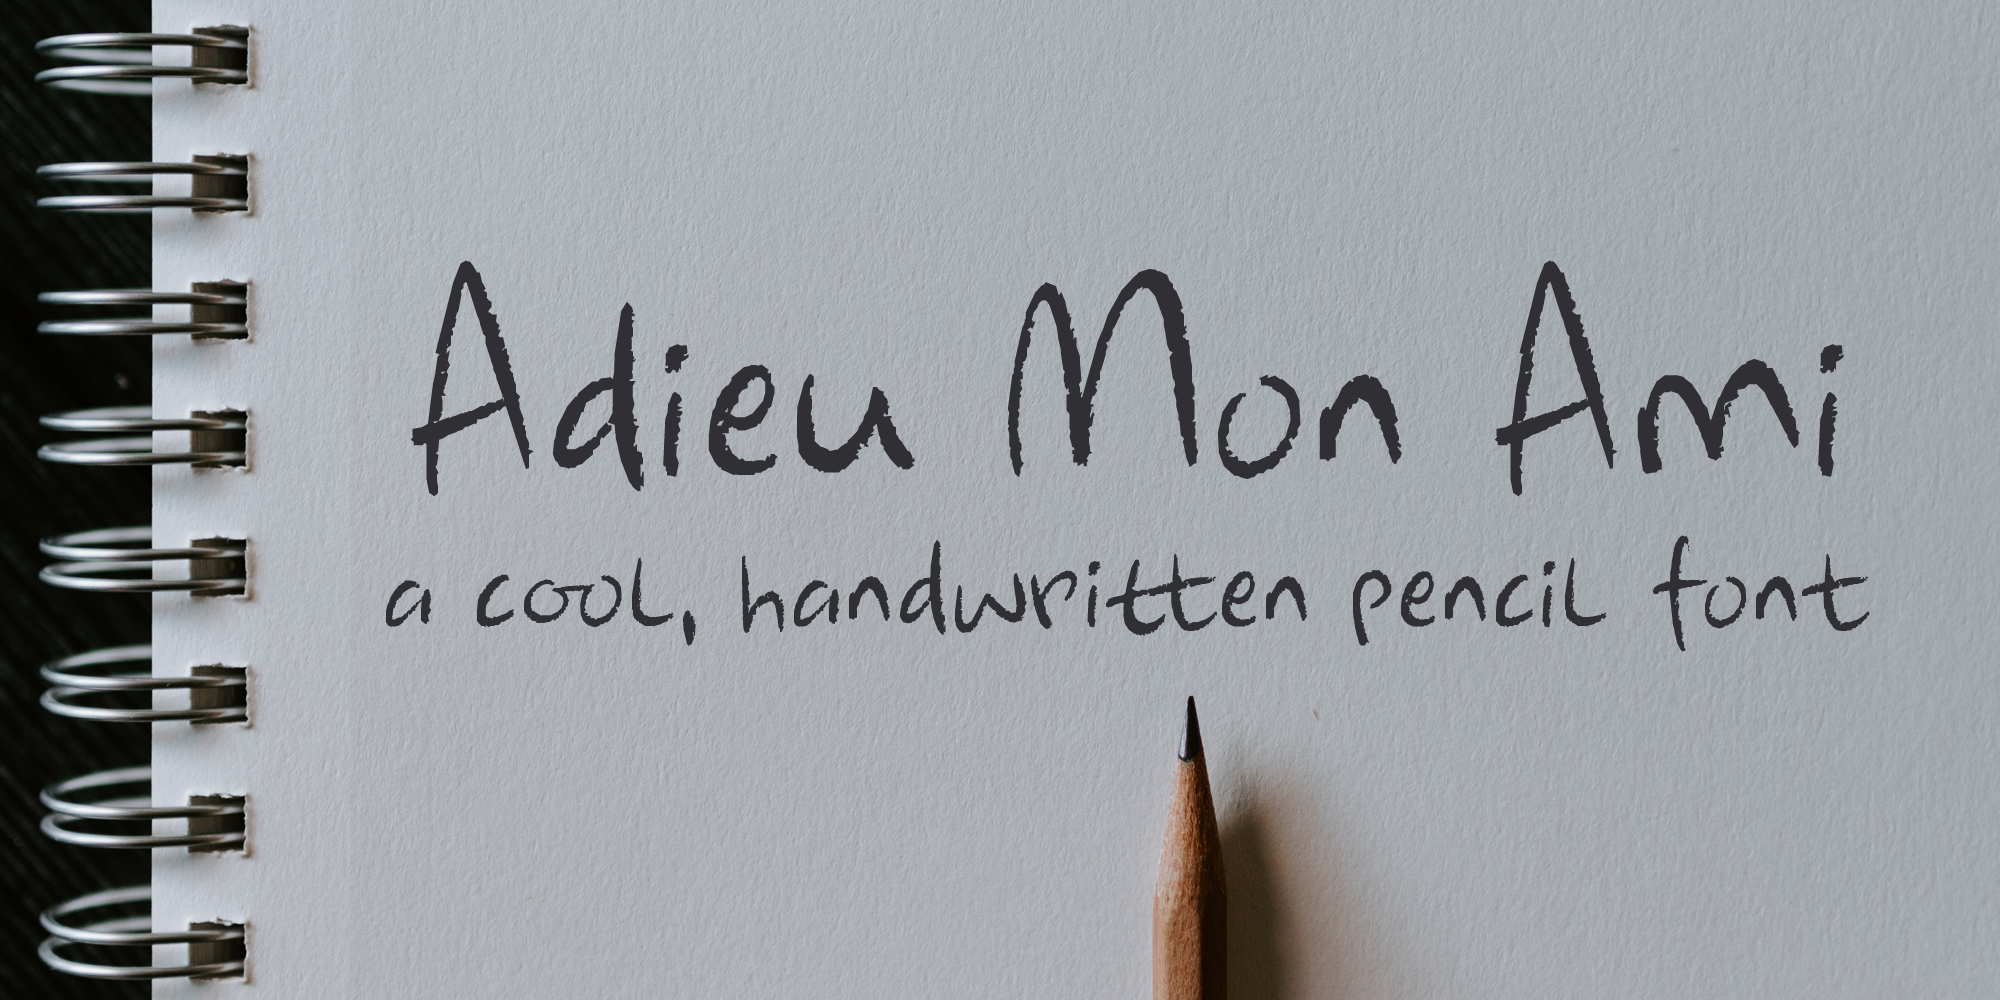 Adieu Mon Ami
a cool, handwritten pencil font